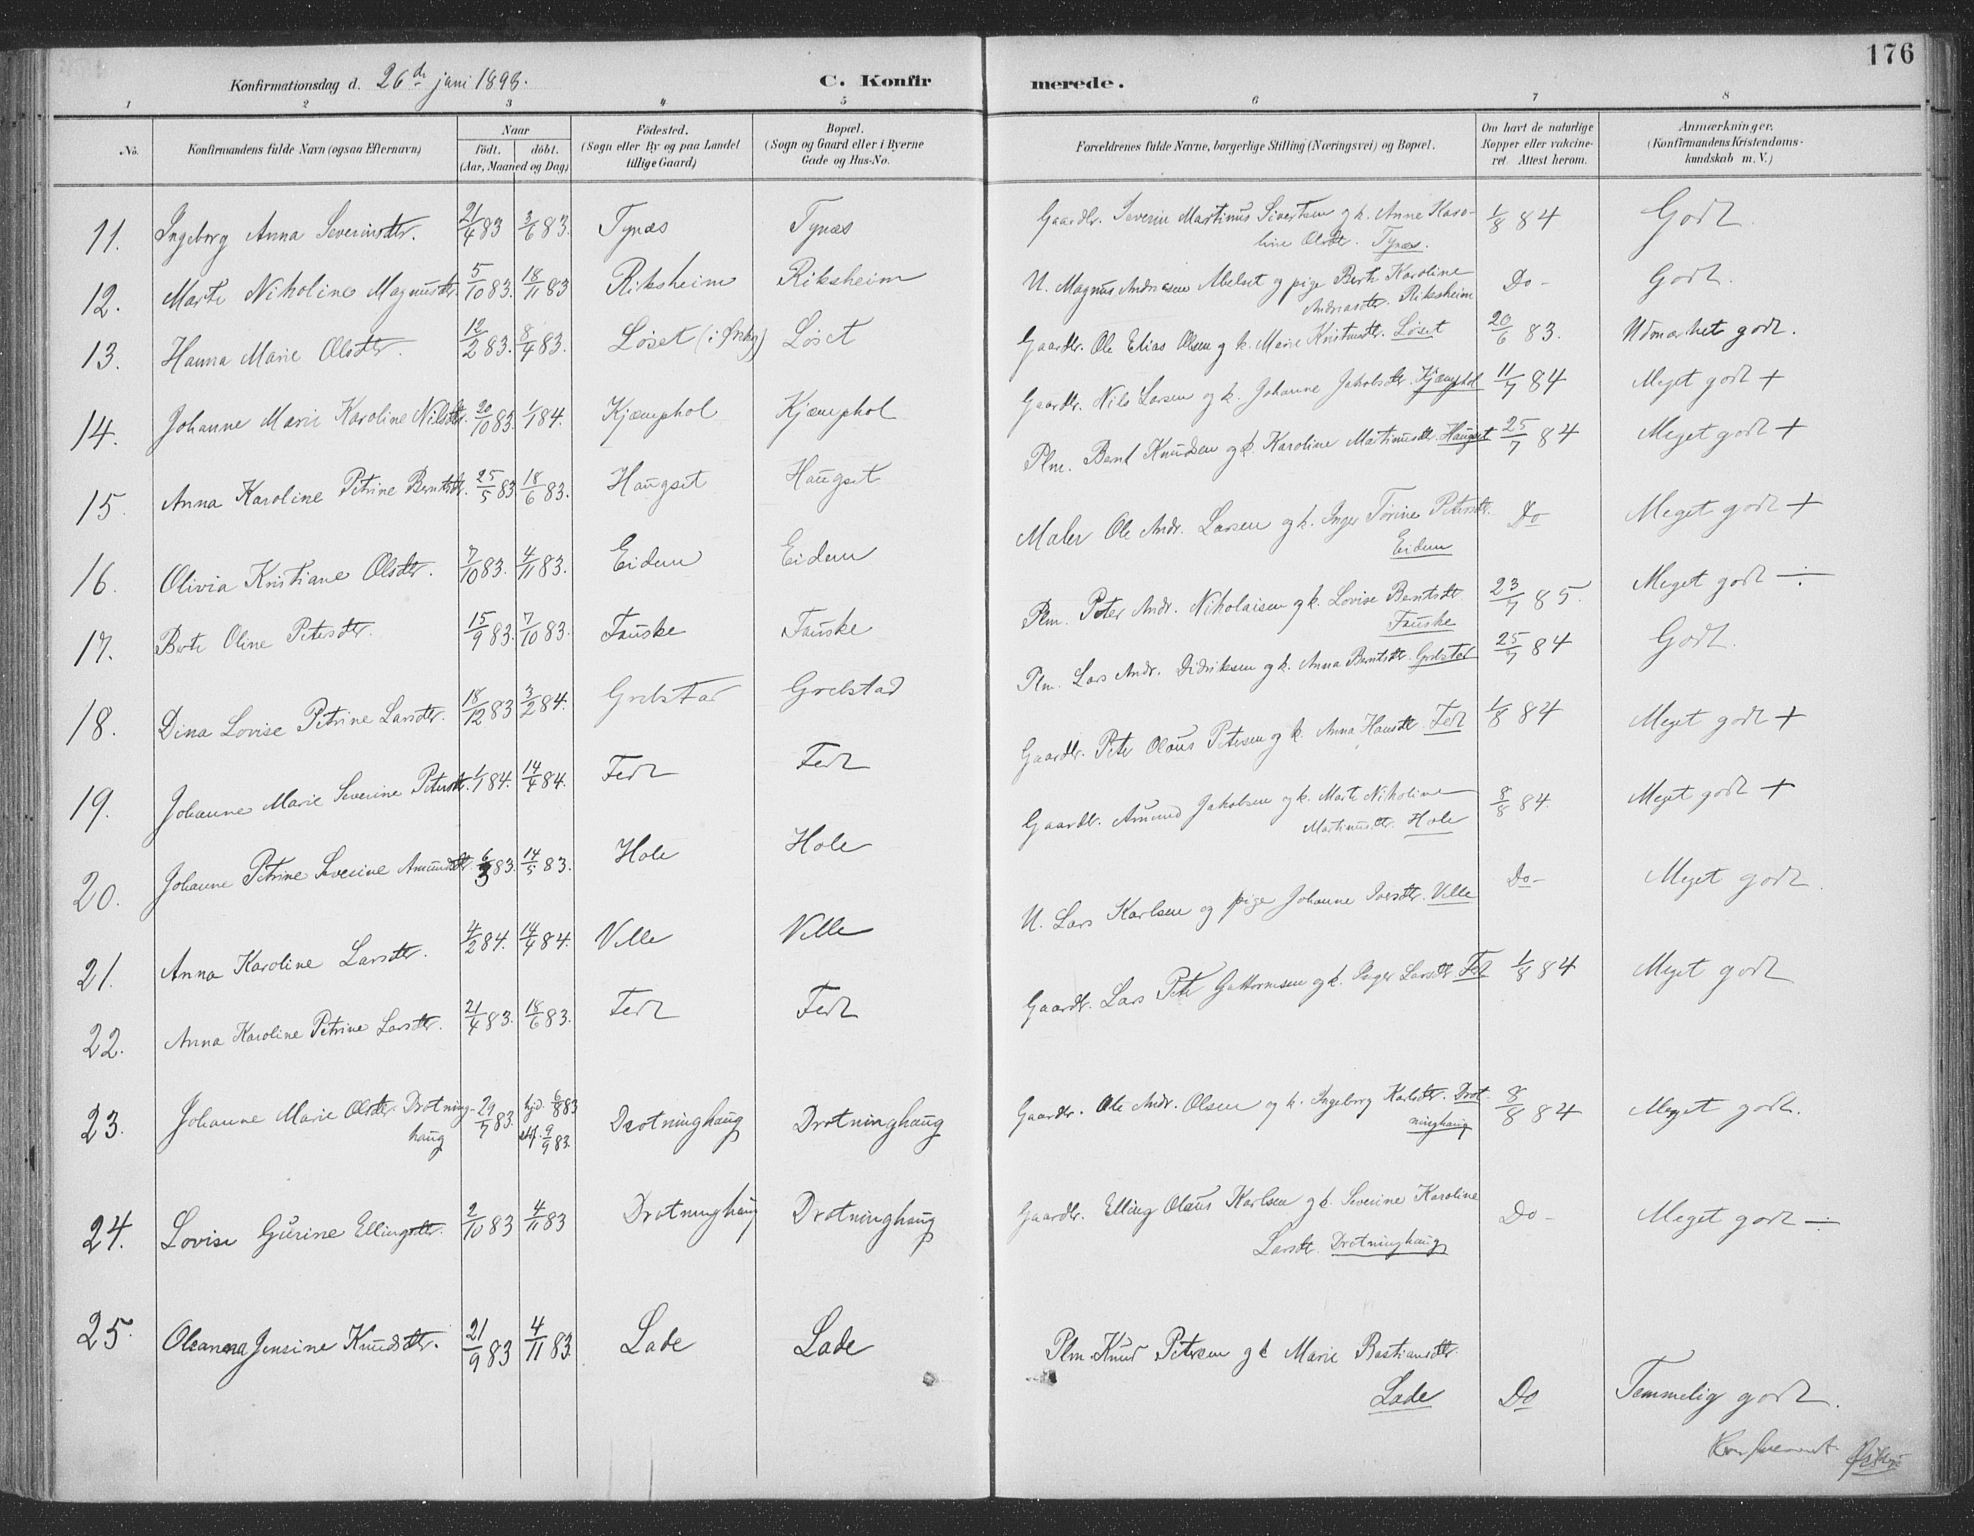 176
Konfirmationsdag d. 26de juni 1898.
C. Konfirmerede.
1 2 3 4 5 6 7 8
No.
Konfirmandens fulde Navn (ogsaa Efternavn)
Naar
födt. döbt.
(Aar, Maaned og Dag)
Födested.
(Sogn eller By og paa Landet
tillige Gaard)
Bopæl.
(Sogn og Gaard eller i Byerne
Gade og Hus-No.
Forældrenes fulde Navne, borgerlige Stilling (Næringsvei) og Bopæl.
Om havt de naturlige
Kopper eller vakcine-
ret. Attest herom.
Anmærkninger.
(Konfirmandens Kristendoms-
kundskab m. V.)
11. Ingeborg Anna Severinsdtr. 21/4 83 3/6 83. Tynæs Tynæs Gaardbr. Severin Martinus Sivertsen og k. Anne Karo- 1/8 84 Godt
line Olsdtr. Tynæs.
12. Marte Nikoline Magnusdtr. 5/10 83. 18/11 83 Riksheim Riksheim U. Magnus Andreasen Abelset og pige Berte Karoline Do- Godt.
Andreasdtr. Riksheim
13. Hanna Marie Olsdtr. 12/2 83. 8/4 83. Løset (i Ørskog) Løset Gaardbr. Ole Elias Olsen og k. Marie Kristinsdtr. Løset 20/6 83. Udmærket godt.
14. Johanne Marie Karoline Nilsdtr. 20/10 83. 1/1 84. Kjæmphol Kjæmphol Gaardbr. Nils Larsen og k. Johanne Jakobsdtr. Kjæmphol 11/7 84 Meget godt +
15. Anna Karoline Petrine Berntsdtr. 25/5 83 18/6 83. Haugset Haugset Plm. Bernt Knudsen og k. Karoline Martinusdtr. Haugset 25/7 84 Meget godt +
16. Olivia Kristiane Olsdtr. 7/10 83. 4/11 83. Eidem Eidem Maler Ole Andr. Larsen og k. Inger Torine Petersdtr. Do Meget godt +
Eidem
17. Berte Oline Petersdtr. 15/9 83. 7/10 83. Fauske Fauske Plm. Peter Andr. Nikolaisen og k. Lovise Berntsdtr. 23/7 85. Meget godt ÷
Fauske
18. Dina Lovise Petrine Larsdtr. 18/12 83 3/2 84. Grebstad Grebstad Plm. Lars Andr. Didriksen og k. Anna Berntsdtr. Grebstad 25/7 84 Godt.
19. Johanne Marie Severine Petersdtr. 1/1 84. 14/4 84. Fedt Fedt Gaardbr. Peter Olaus Petersen og k. Anna Hansdtr. Fedt 1/8 84 Meget godt +
20. Johanne Petrine Severine Amundsdtr. 6/3 83. 14/5 83. Hole Hole Gaardbr. Amund Jakobsen og k. Marte Nikoline 8/8 84 Meget godt +
Martinusdtr. Hole
21. Anna Karoline Larsdtr. 4/2 84. 14/4 84. Velle Velle U. Lars Karlsen og pige Johanne Iversdtr. Velle Do- Meget godt.
22. Anna Karoline Petrine Larsdtr. 21/4 83. 18/6 83. Fedt Fedt Gaardbr. Lars Peter Guttormsen og k. Inger Larsdtr. Fedt 1/8 84 Meget godt
23. Johanne Marie Olsdtr. Drotning- 29/7 83. hjd. 6/8 83 Drotninghaug Drotninghaug Gaardbr. Ole Andr. Olsen og k. Ingeborg Karlsdtr. Drot- 8/8 84 Meget godt.
haug stf. 9/9 83. ninghaug
24. Lovise Gurine Ellingsdtr. 2/10 83 4/11 83 Drotninghaug Drotninghaug Gaardbr. Elling Olaus Karlsen og k. Severine Karoline Do- Meget godt ÷
Larsdtr. Drotninghaug
25. Oleanna Jensine Knudsdtr. 21/9 83 4/11 83 Lade Lade Plm. Knud Petersen og k Marie Bastiansdtr.
Lade Do Temmelig godt.